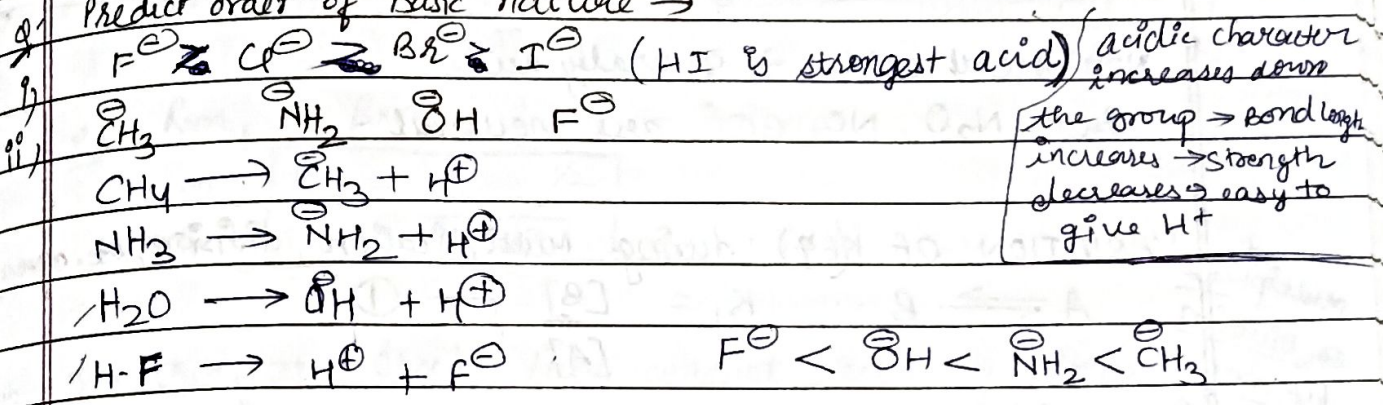 Q. Predict order of Basic nature →
i) F⊖ > Cl⊖ > Br⊖ > I⊖ (HI is strongest acid)
acidic character
increases down
the group → Bond length
increases → strength
decreases → easy to
give H+
ii) C̈H₃⊖ N̈H₂⊖ ÖH⊖ F⊖
CH4 → CH₃⊖ + H⊕
NH3 → NH₂⊖ + H⊕
H2O → OH⊖ + H⊕
H-F → H⊕ + F⊖
F⊖ < OH⊖ < NH₂⊖ < CH₃⊖